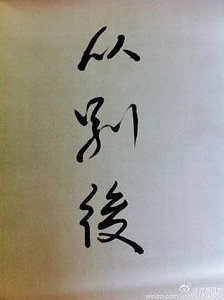 从别後
weibo.com/